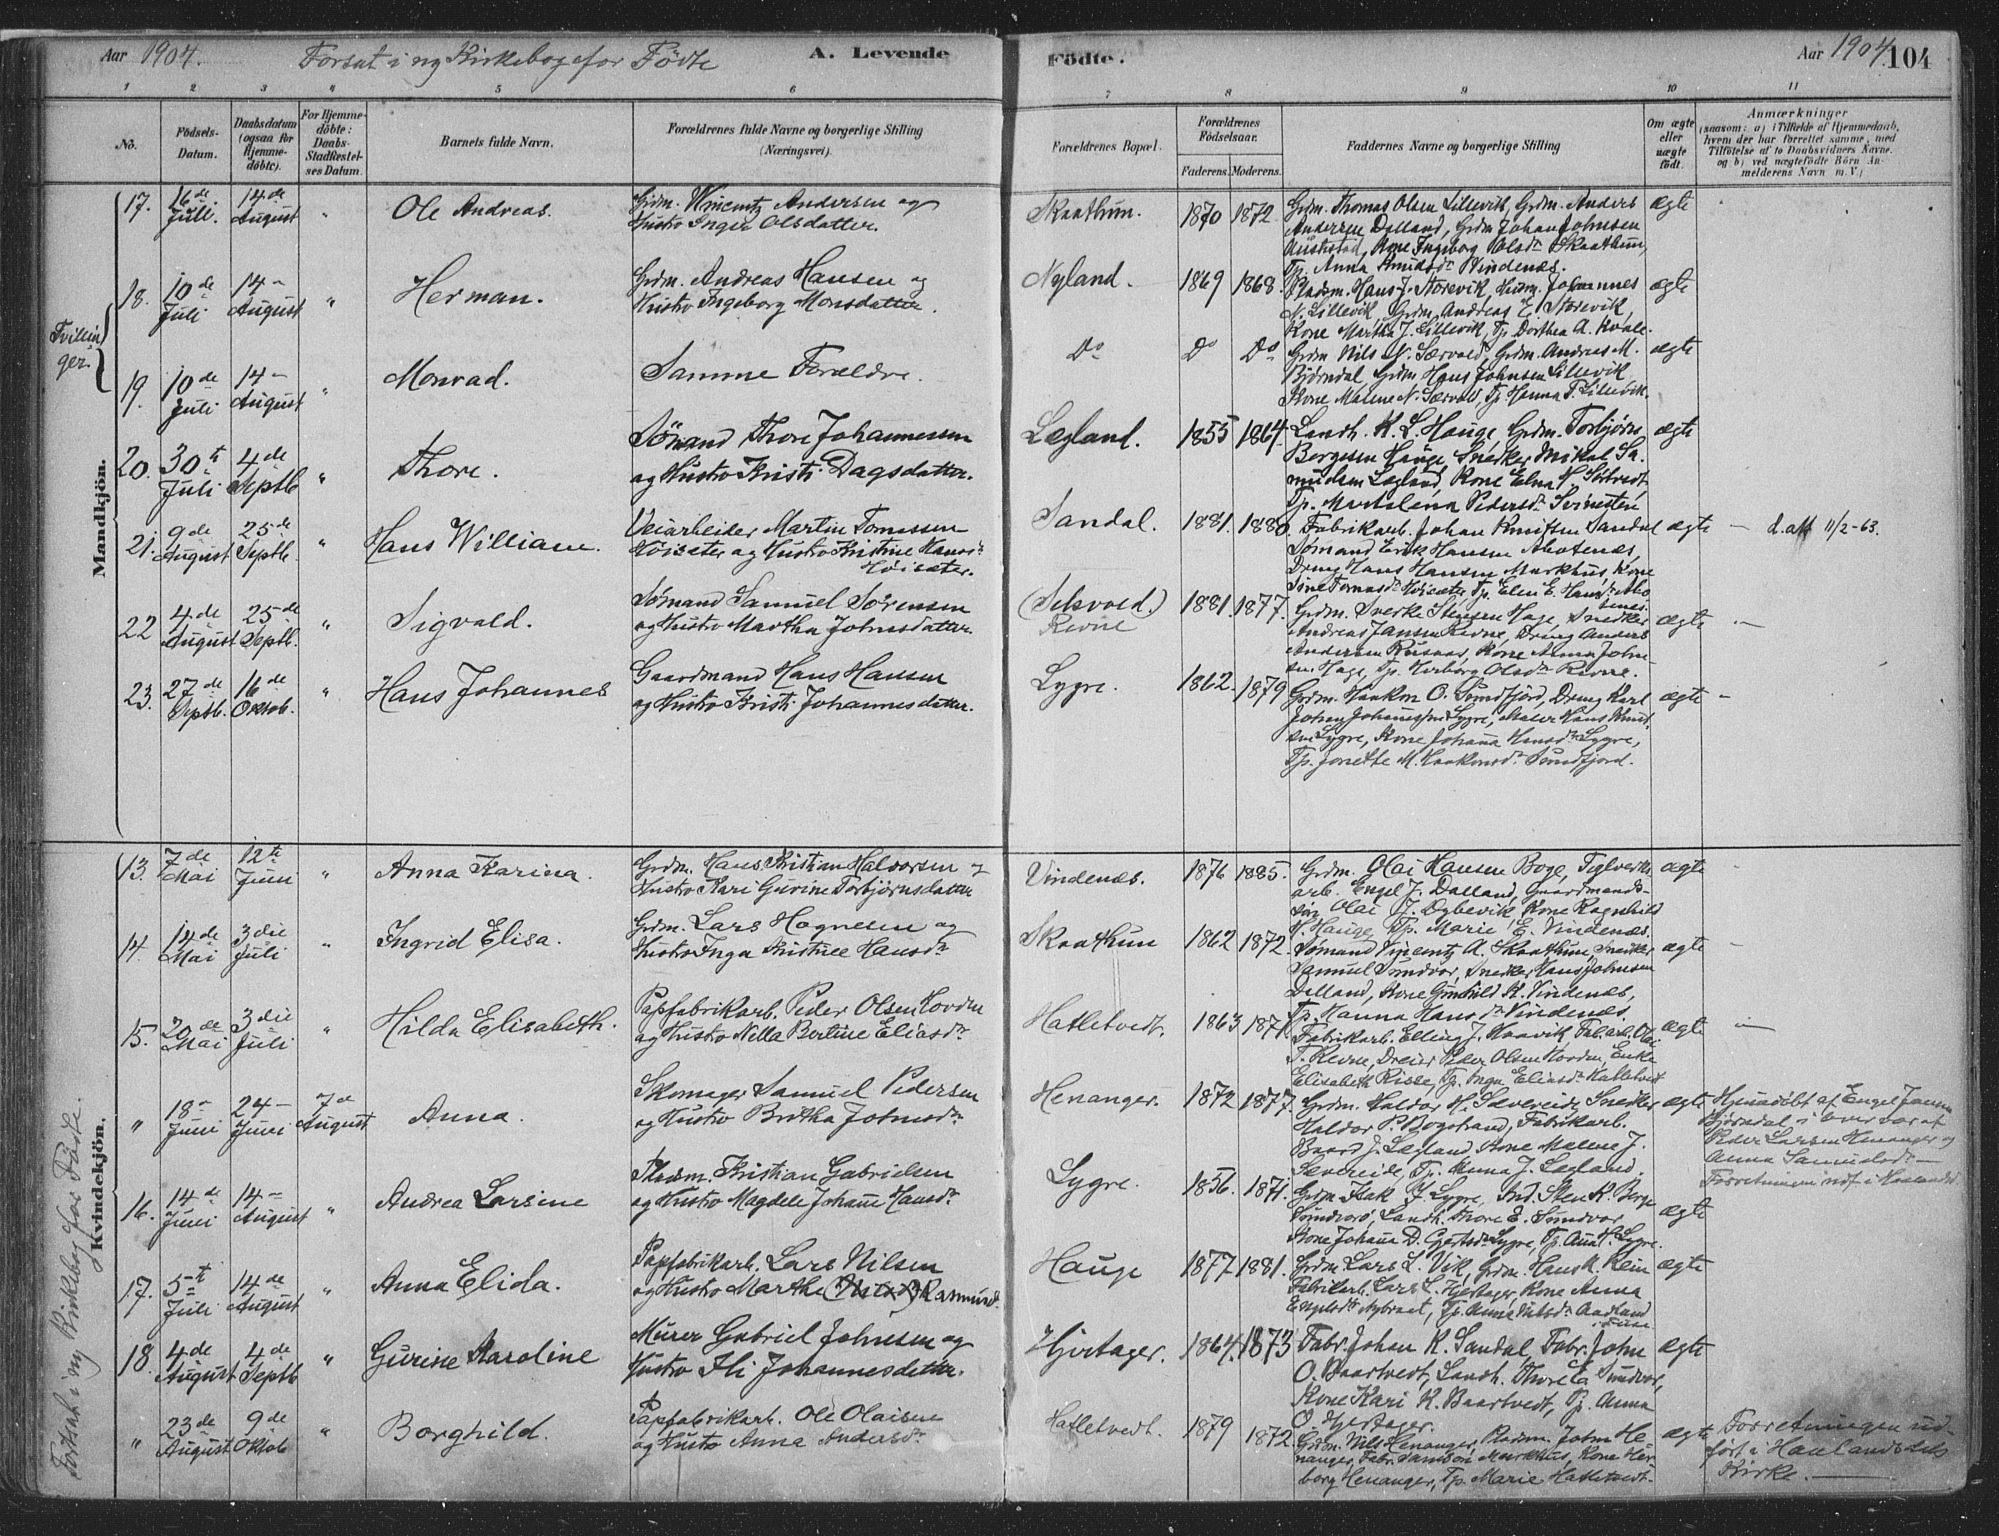 Aar 1904. Forsat i ny Kirkebog for Födte A. Levende Födte. Aar 1904. 104
1 2 3 4 5 6 7 8 9 10 11
No. Födsels-Datum. Daabsdatum (ogsaa for Hjemme-döbte). For Hjemme-döbte: Daabs-Stadfæstel-ses Datum. Barnets fulde Navn. Forældrenes fulde Navne og borgerlige Stilling (Næringsvei). Forældrenes Bopæl. Forældrenes Födselsaar. Faderens. Moderens. Faddernes Navne og borgerlige Stilling Om ægte eller uægte födt. Anmærkninger
(saasom: a) i Tilfælde af Hjemmedaab,
hvem der har forrettet samme, med
Tilföielse af to Daabsvidners Navne.
og b) ved uægtefödte Börn An-
melderens Navn m. V.)
Mandkjön.
17. 16de Juli. 14de August " Ole Andreas. Grdm. Vincentz Andersen og
Hustro Inger Olsdatter. Skaathun. 1870 1872 Grdm. Thomas Olsen Lillevik, Grdm. Anders ægte
Andersen Dalland, Grdm Johan Johnsen
Kone Ingeborg Olsdr Skaathun,
Tp. Anna Knudsdr Vindenæs.
Tvillinger.
18. 10de Juli 14 August " Herman. Grdm. Andreas Hansen og
Hustro Ingeborg Monsdatter. Nyland. 1869 1868 Pladsm. Hans J. Storevik, Husm. Johannes ægte
N. Lillevik, Grdm. Andreas E. Storevik,
Kone Martha J. Lillevik, Tp. Dorthea A. Kvale.
19. 10de Juli 14 August " Monrad. Samme Forældre. Do Do Do Grdm Nils N. Særvold, Grdm. Andreas M. ægte
Bjørndal, Grdm Hans Johnsen Lillevik
Kone Malene N. Særvold, Tp. Hanna T. Lillevik.
20. 30te Juli 4de Septb " Thore. Sømand Thore Johannessen
og Hustro Kristi Dagsdatter. Lægland. 1855 1864. Landh. K. L. Hauge, Grdm. Torbjørn ægte
Børgesen Hauge, Snedker Mikal Sa-
muelsen Lægland, Kone Elna
Tp. Martalena Pedersdr Svinesten
21. 9de August 25de Septb. " Hans William. Veiarbeider Martin Tomassen
Høisæter og Hustro Kristine Hansdr
Høisæter. Sandal. 1881. 1880. Fabrikarb. Johan Knutsen Sandal ægte - d. att 11/2-63.
Sømand Erik Hansen Aketenæs,
Dreng Hans Hansen Markhus, Kone
Sine Tomasdr Høisæter, Tp. Elen E. Hansdr
22 4de August 25de Septb. " Sigvald. Sømand Samuel Sørensen
og Hustro Martha Johnsdatter. (Selsvold.)
Revne 1881. 1877. Grdm. Sverke Stensen Hage, Snedker ægte -
Andreas Jansen Revne, Dreng Anders
Andersen Kone Anna John-
sen Hage, Tp. Herborg Olsdr Revne.
23. 27de Septb. 16de Oktob. " Hans Johannes Gaardmand Hans Hansen
og Hustro Kristi Johannesdatter. Lygre. 1862. 1879 Grdm. Haakon O. Sundfjord, Dreng Karl ægte -
Johan Johannessen Lygre, Maler Hans Knut-
sen Lygre, Kone Johanna Hansdr Lygre,
Tp. Jonette M. Haakonsdr Sundfjord.
Kvindekjön.
Fortsat i ny Kirkebog for Fødte.
13. 7de Mai 12te Juni " Anna Karina. Grdm. Hans Kristian Halvorsen og
Hustro Kari Gurine Torbjørnsdatter Vindenæs. 1876 1885. Grdm. Olai Hansen Boge, Teglverks ægte -
arb. Engel J. Dalland, Gaardmands-
søn Olai J. Døbevik, Kone Ragnhild
H. Hauge, Tp. Marie E. Vindenæs.
14. 14de Mai 3die Juli " Ingrid Elisa. Grdm. Lars Hagnesen og
Hustro Inga Kristine Hansdr Skaathun 1862 1872 Sømand Vincentz A. Skaathun, Snedker ægte -
Samuel Sundvor, Snedker Hans Johnsen
Dalland, Kone Gunhild K. Vindenæs,
Tp. Hanna Hansdr Vindenæs.
15. 20de Mai 3die Juli " Hilda Elisabeth. Papfabrikarb. Peder Olsen Hovden
og Hustro Nella Bertine Eliasdr Hatletvedt. 1863 1871 Fabrikarb. Elling J. Haavik, Fab.arb. Olai ægte -
T. Revne, Dreier Peder Olsen Hovden, Enke
Elisabeth Risse, Tp. Inga Eliasdr Hatletvedt
" 18 Juni 24 Juni 7de August Anna. Skomager Samuel Pedersen
og Hustro Britha Johnsdr Henanger. 1872 1877. Grdm. Haldor H. Sævereide, Snedker ægte Hjemdøbt af Engel Janna
Haldor P. Bogstrand, Fabrikarb. Bjørndal i Overvær af
Baard J. Lægland, Kone Malene J. Peder Larsen Henanger og
Sævereide, Tp. Anna J. Lægland. Anna Samuelsdr
Forretningen udf. i
16. 14de Juni 14 August " Andrea Larsine Pladsm. Kristian Gabrielsen
og Hustro Magdele Johanne Hansdr Lygre. 1856. 1871. Grdm. Isak J. Lygre, Ind. Sten K. Berge ægte
Sundvor, Landh. Thore E. Sundvor,
Kone Johanna D. Gjertsdr Lygre, Tp. Anna H. Lygre.
17. 5te Juli 14de August " Anna Elida. Papfabrikarb. Lars Nilsen
og Hustro Marthe Rasmusdr Hauge 1877 1881. Grdm. Lars L. Vik, Grdm. Hans K. Klein ægte
Fabrikarb. Lars L. Hjertager, Kone Anna
Engelsdr Nybraat, Tp. Anna Nilsdr Aadland
i Fuse
18 4de August 4de Septb " Gurine Karoline Murer Gabriel Johnsen og
Hustro Ili Johannesdatter. Hjertager. 1864. 1873 Fabr. Johan K. Sandal, Fabr. John ægte
O. Baartvedt, Landh. Thore E Sundvor,
Kone Kari K. Baartvedt, Tp. Anna
O. Hjertager.
" 23de August 9de Oktob " Borghild. Papfabrikarb. Ole Olaisen
og Hustro Anna Andersdr Hatletvedt. 1879 1872 Grdm. Nils Henanger, Pladsm. John He- ægte Forretningen ud-
nanger, Fabr. Samson Markhus, Kone Her- ført i Haalandsdals
borg Henanger, Tp. Marie Hatletvedt. Kirke.